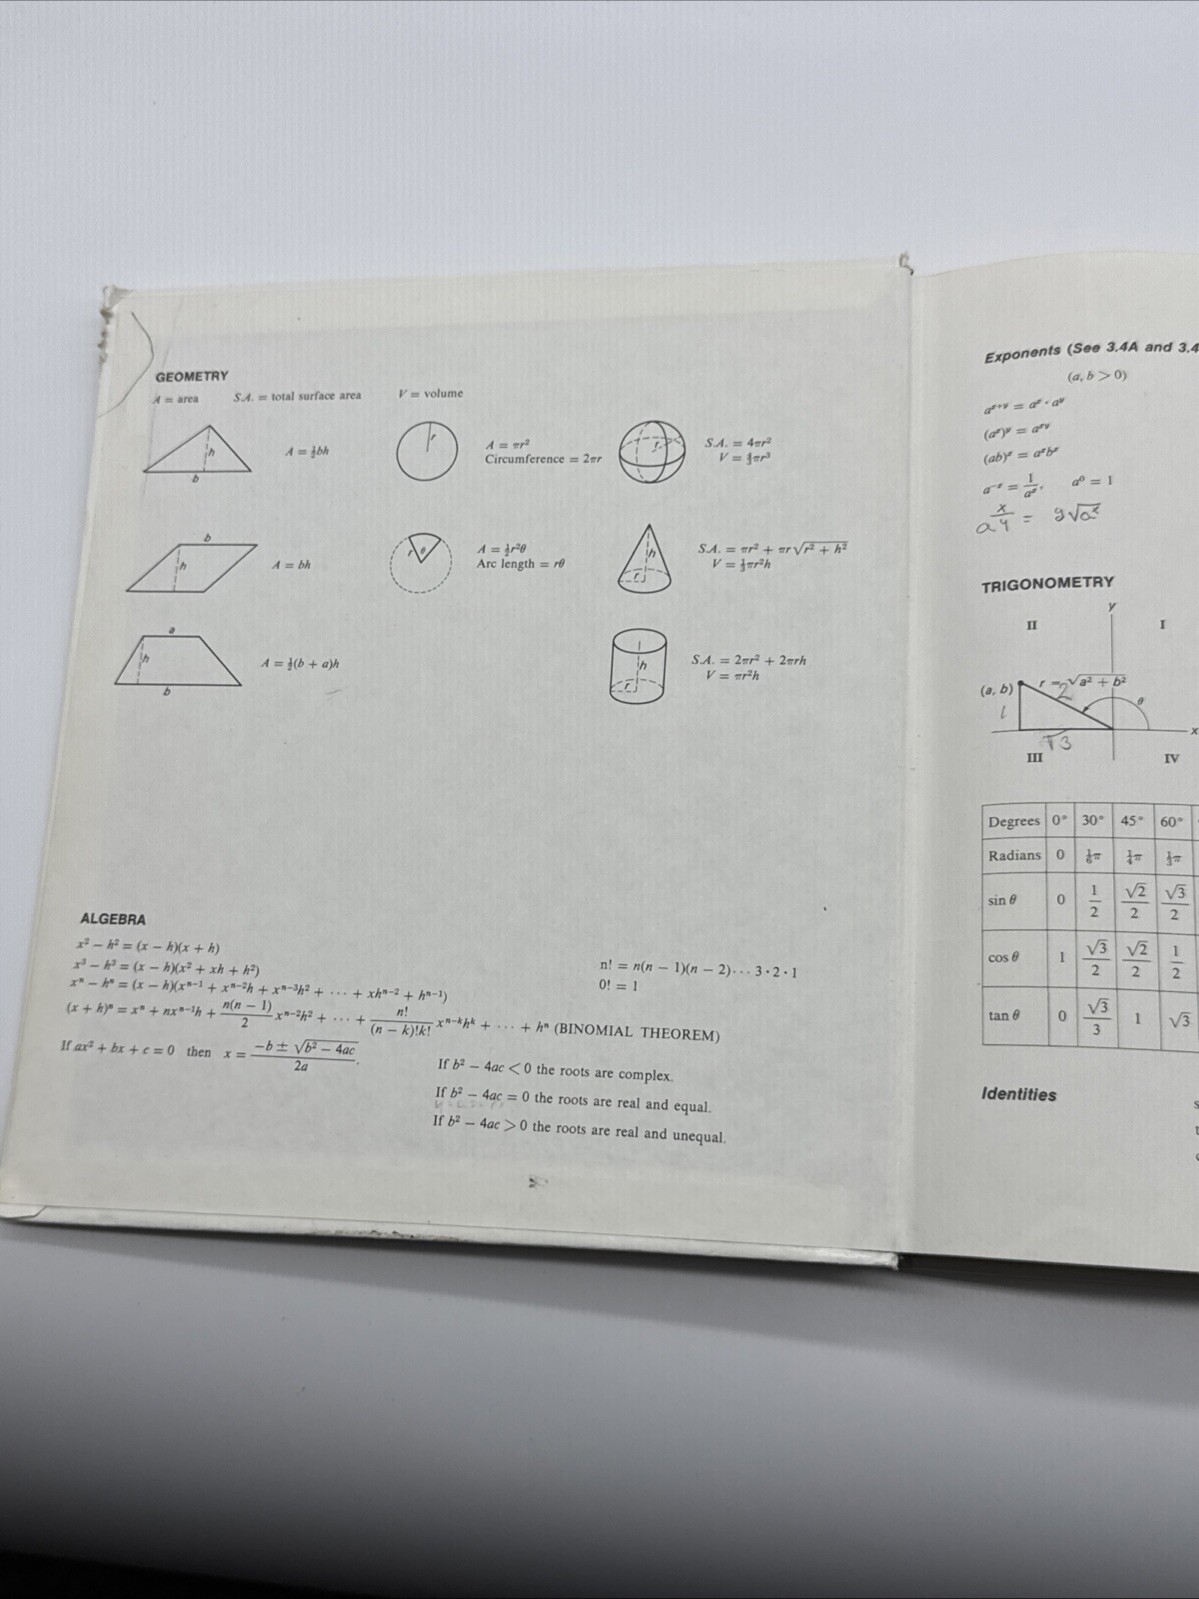 GEOMETRY
A = area S.A. = total surface area V = volume
h
b
A = ½bh
r
A = πr²
Circumference = 2πr
r
S.A. = 4πr²
V = 4/3πr³
b
h
A = bh
r θ
A = ½r²θ
Arc length = rθ
h
r
S.A. = πr² + πr√(r² + h²)
V = ⅓πr²h
a
h
b
A = ½(b + a)h
h
r
S.A. = 2πr² + 2πrh
V = πr²h
ALGEBRA
x² − h² = (x − h)(x + h)
x³ − h³ = (x − h)(x² + xh + h²)
xⁿ − hⁿ = (x − h)(xⁿ⁻¹ + xⁿ⁻²h + xⁿ⁻³h² + ··· + xhⁿ⁻² + hⁿ⁻¹)
n! = n(n − 1)(n − 2)··· 3·2·1
0! = 1
(x + h)ⁿ = xⁿ + nxⁿ⁻¹h + n(n − 1)/2 xⁿ⁻²h² + ··· + n!/(n − k)!k! xⁿ⁻ᵏhᵏ + ··· + hⁿ (BINOMIAL THEOREM)
If ax² + bx + c = 0 then x = (−b ± √(b² − 4ac))/2a.
If b² − 4ac < 0 the roots are complex.
If b² − 4ac = 0 the roots are real and equal.
If b² − 4ac > 0 the roots are real and unequal.
Exponents (See 3.4A and 3.4
(a, b > 0)
aˣ⁺ʸ = aˣ · aʸ
(aˣ)ʸ = aˣʸ
(ab)ˣ = aˣbˣ
a⁻ˣ = 1/aˣ, a⁰ = 1
a^(x/y) = ʸ√aˣ
TRIGONOMETRY
y
II I
(a, b) r = √(a² + b²)
2
θ
1
x
√3
III IV
Degrees 0° 30° 45° 60°
Radians 0 1/6π 1/4π 1/3π
sin θ 0 1/2 √2/2 √3/2
cos θ 1 √3/2 √2/2 1/2
tan θ 0 √3/3 1 √3
Identities